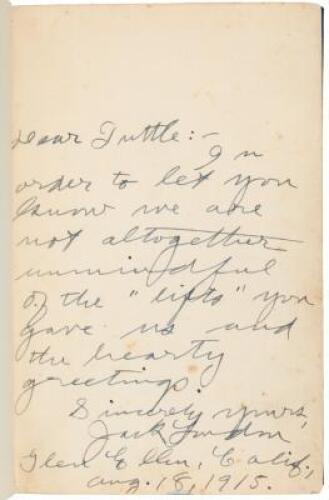 Dear Tuttle:-
In
order to let you
know we are
not altogether
unmindful
of the "lifts" you
gave us and
the hearty
greetings.
Sincerely yours,
Jack London
Glen Ellen, Calif.,
Aug. 18, 1915.